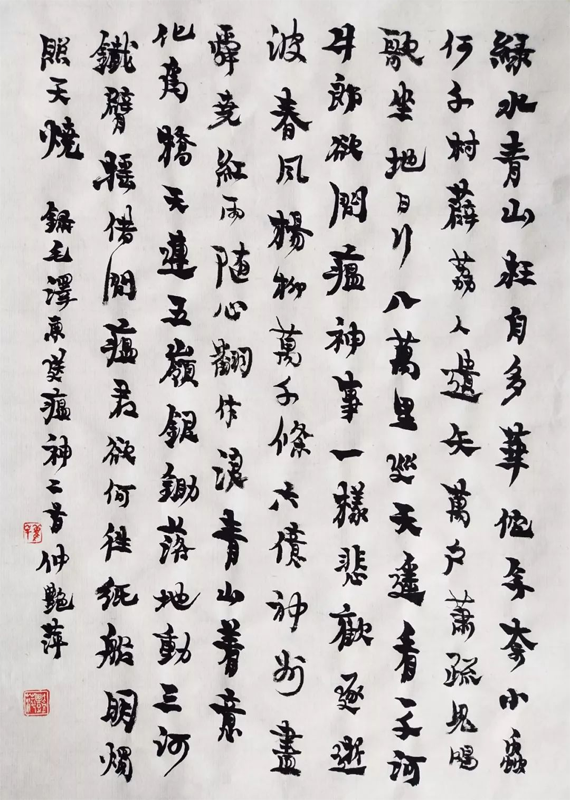 綠水青山枉自多華佗奈小蟲
何千村薜荔人遺矢萬户蕭疏鬼唱
歌坐地日行八萬里巡天遥看一千河
牛郎欲問瘟神事一樣悲歡逐逝
波春風楊柳萬千條六億神州盡
舜堯紅雨随心翻作浪青山着意
化為橋天連五嶺銀鋤落地動三河
鐵臂摇借問瘟君欲何往紙船明燭
照天燒 錄毛澤東送瘟神二首 仲艷萍